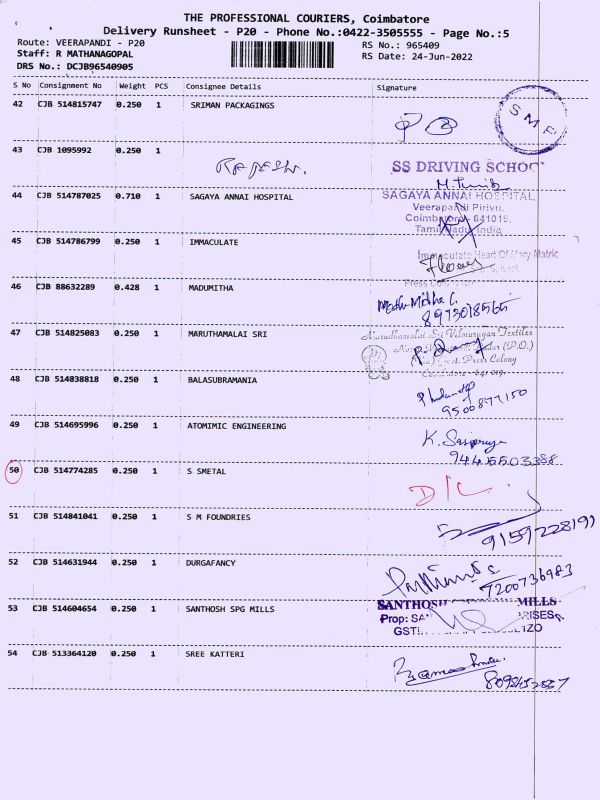 THE PROFESSIONAL COURIERS, Coimbatore
Delivery Runsheet - P20 - Phone No.:0422-3505555 - Page No.:5
Route: VEERAPANDI - P20
Staff: R MATHANAGOPAL
DRS No.: DCJB96540905
RS No.: 965409
RS Date: 24-Jun-2022
S No Consignment No Weight PCS Consignee Details Signature
42 CJB 514815747 0.250 1 SRIMAN PACKAGINGS
SMP
43 CJB 1095992 0.250 1
SS DRIVING SCHOO
44 CJB 514787025 0.710 1 SAGAYA ANNAI HOSPITAL
SAGAYA ANNAI HOSPITAL,
Veerapandi Pirivu,
Coimbatore - 641019,
Tamil Nadu, India
45 CJB 514786799 0.250 1 IMMACULATE
Immaculate Heart Of Mary Matric
46 CJB 88632289 0.428 1 MADUMITHA
8973018565
47 CJB 514825083 0.250 1 MARUTHAMALAI SRI
Marudhamalai Sri Velmurugan Textiles
Press Colony
48 CJB 514838818 0.250 1 BALASUBRAMANIA
9500877150
49 CJB 514695996 0.250 1 ATOMIMIC ENGINEERING
9445503388
50 CJB 514774285 0.250 1 S SMETAL
D/L.
51 CJB 514841041 0.250 1 S M FOUNDRIES
9159228199
52 CJB 514631944 0.250 1 DURGAFANCY
7200736983
53 CJB 514604654 0.250 1 SANTHOSH SPG MILLS
SANTHOSH MILLS
54 CJB 513364120 0.250 1 SREE KATTERI